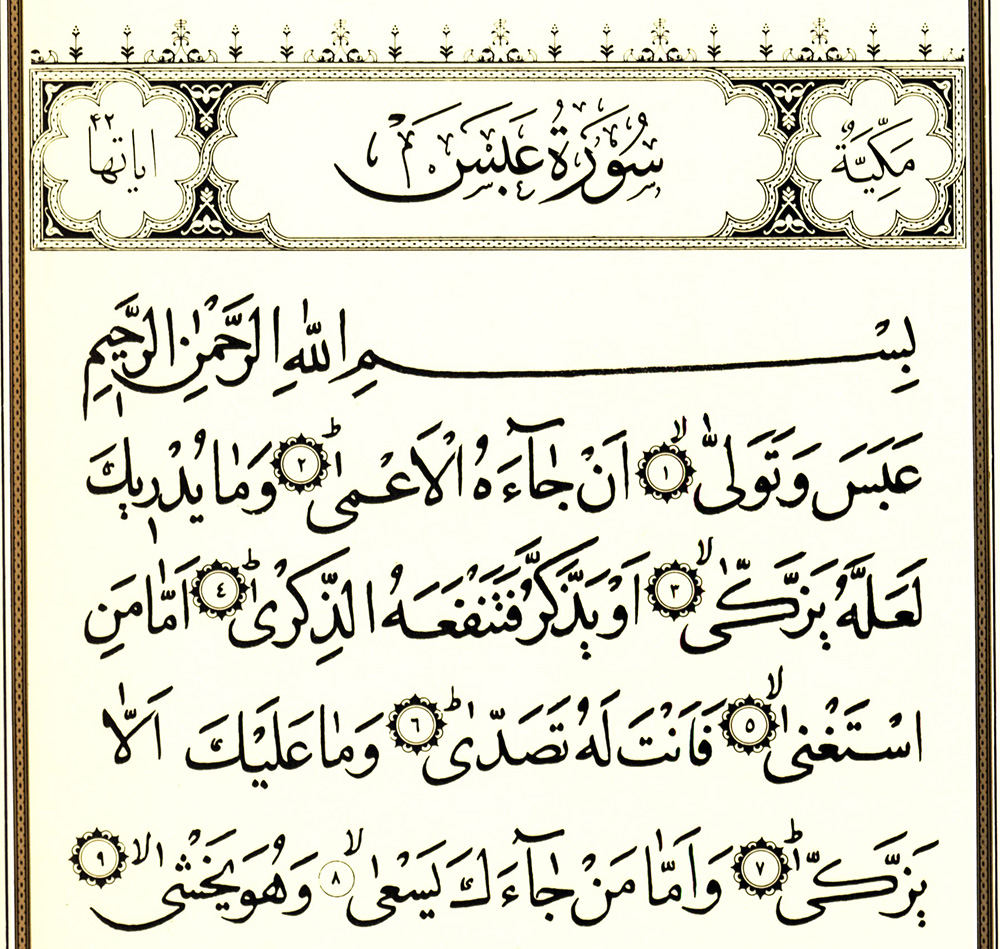 مَكِّيَّةٌ سُوْرَةُ عَبَسَ اٰیاتها ٤٢
بِسْمِ اللّٰهِ الرَّحْمٰنِ الرَّحِيْمِ
عَبَسَ وَتَوَلّٰىۙ ١ اَنْ جَٓاءَهُ الْاَعْمٰىؕ ٢ وَمَا يُدْرٖيكَ
لَعَلَّهُ يَزَّكّٰىۙ ٣ اَوْ يَذَّكَّرُ فَتَنْفَعَهُ الذِّكْرٰىؕ ٤ اَمَّا مَنِ
اسْتَغْنٰىۙ ٥ فَاَنْتَ لَهُ تَصَدّٰىؕ ٦ وَمَا عَلَيْكَ اَلَّا
يَزَّكّٰىؕ ٧ وَاَمَّا مَنْ جَٓاءَكَ يَسْعٰىۙ ٨ وَهُوَ يَخْشٰىۙ ٩